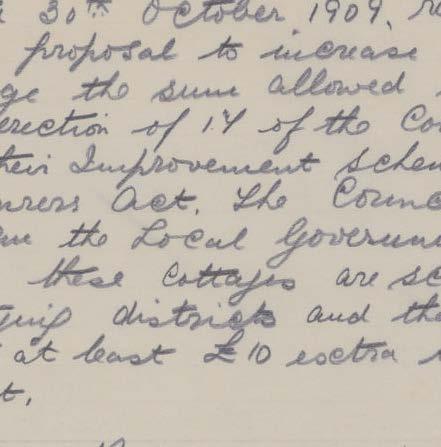 30th October 1909, re
proposal to increase
ge the sum allowed
erection of 14 of the Co
their Improvement schem
urers Act. The Counc
the Local Governme
these Cottages are sc
ying districts and the
at least £10 extra
t.